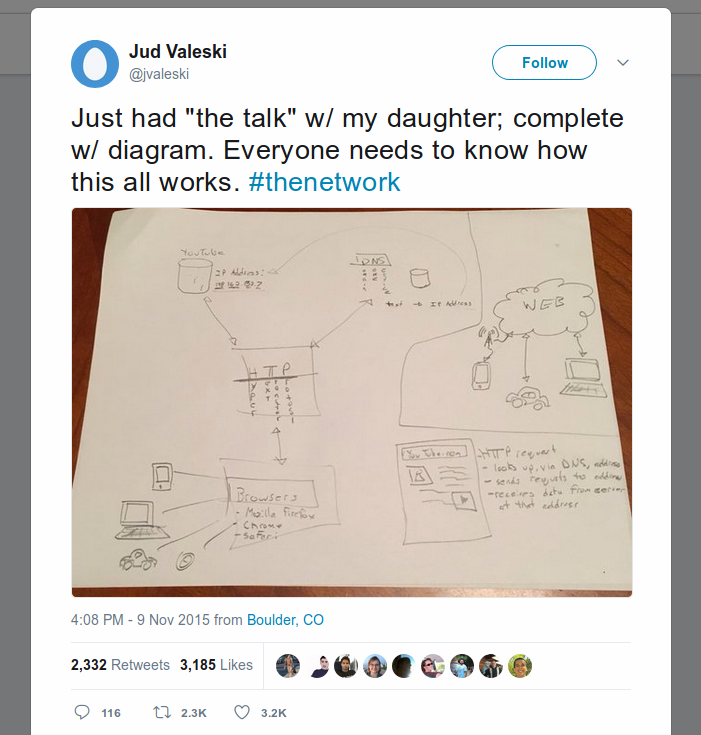 Jud Valeski
@jvaleski
Follow
Just had "the talk" w/ my daughter; complete
w/ diagram. Everyone needs to know how
this all works. #thenetwork
YouTube
IP Address:
DNS
text → IP Address
WEB
HTTP
Hyper
Text
Transfer
Protocol
Browsers
- Mozilla Firefox
- Chrome
- Safari
YouTube.com
HTTP request
- looks up, via DNS, address
- sends requests to address
- receives data from server
at that address
4:08 PM - 9 Nov 2015 from Boulder, CO
2,332 Retweets 3,185 Likes
116 2.3K 3.2K